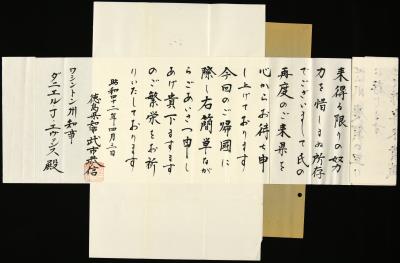 来得る限りの努
力を惜しまぬ所存
でございまして氏の
再度のご来県を
心からお待ち申
し上げております
今回のご帰國に
際し右簡単なが
らごあいさつ申し
あげ貴下ますます
のご繁栄をお祈
りいたしております
昭和四十二年四月三日
徳島県知事 武市恭信
ワシントン州知事
ダニエル・J・エヴァンス殿